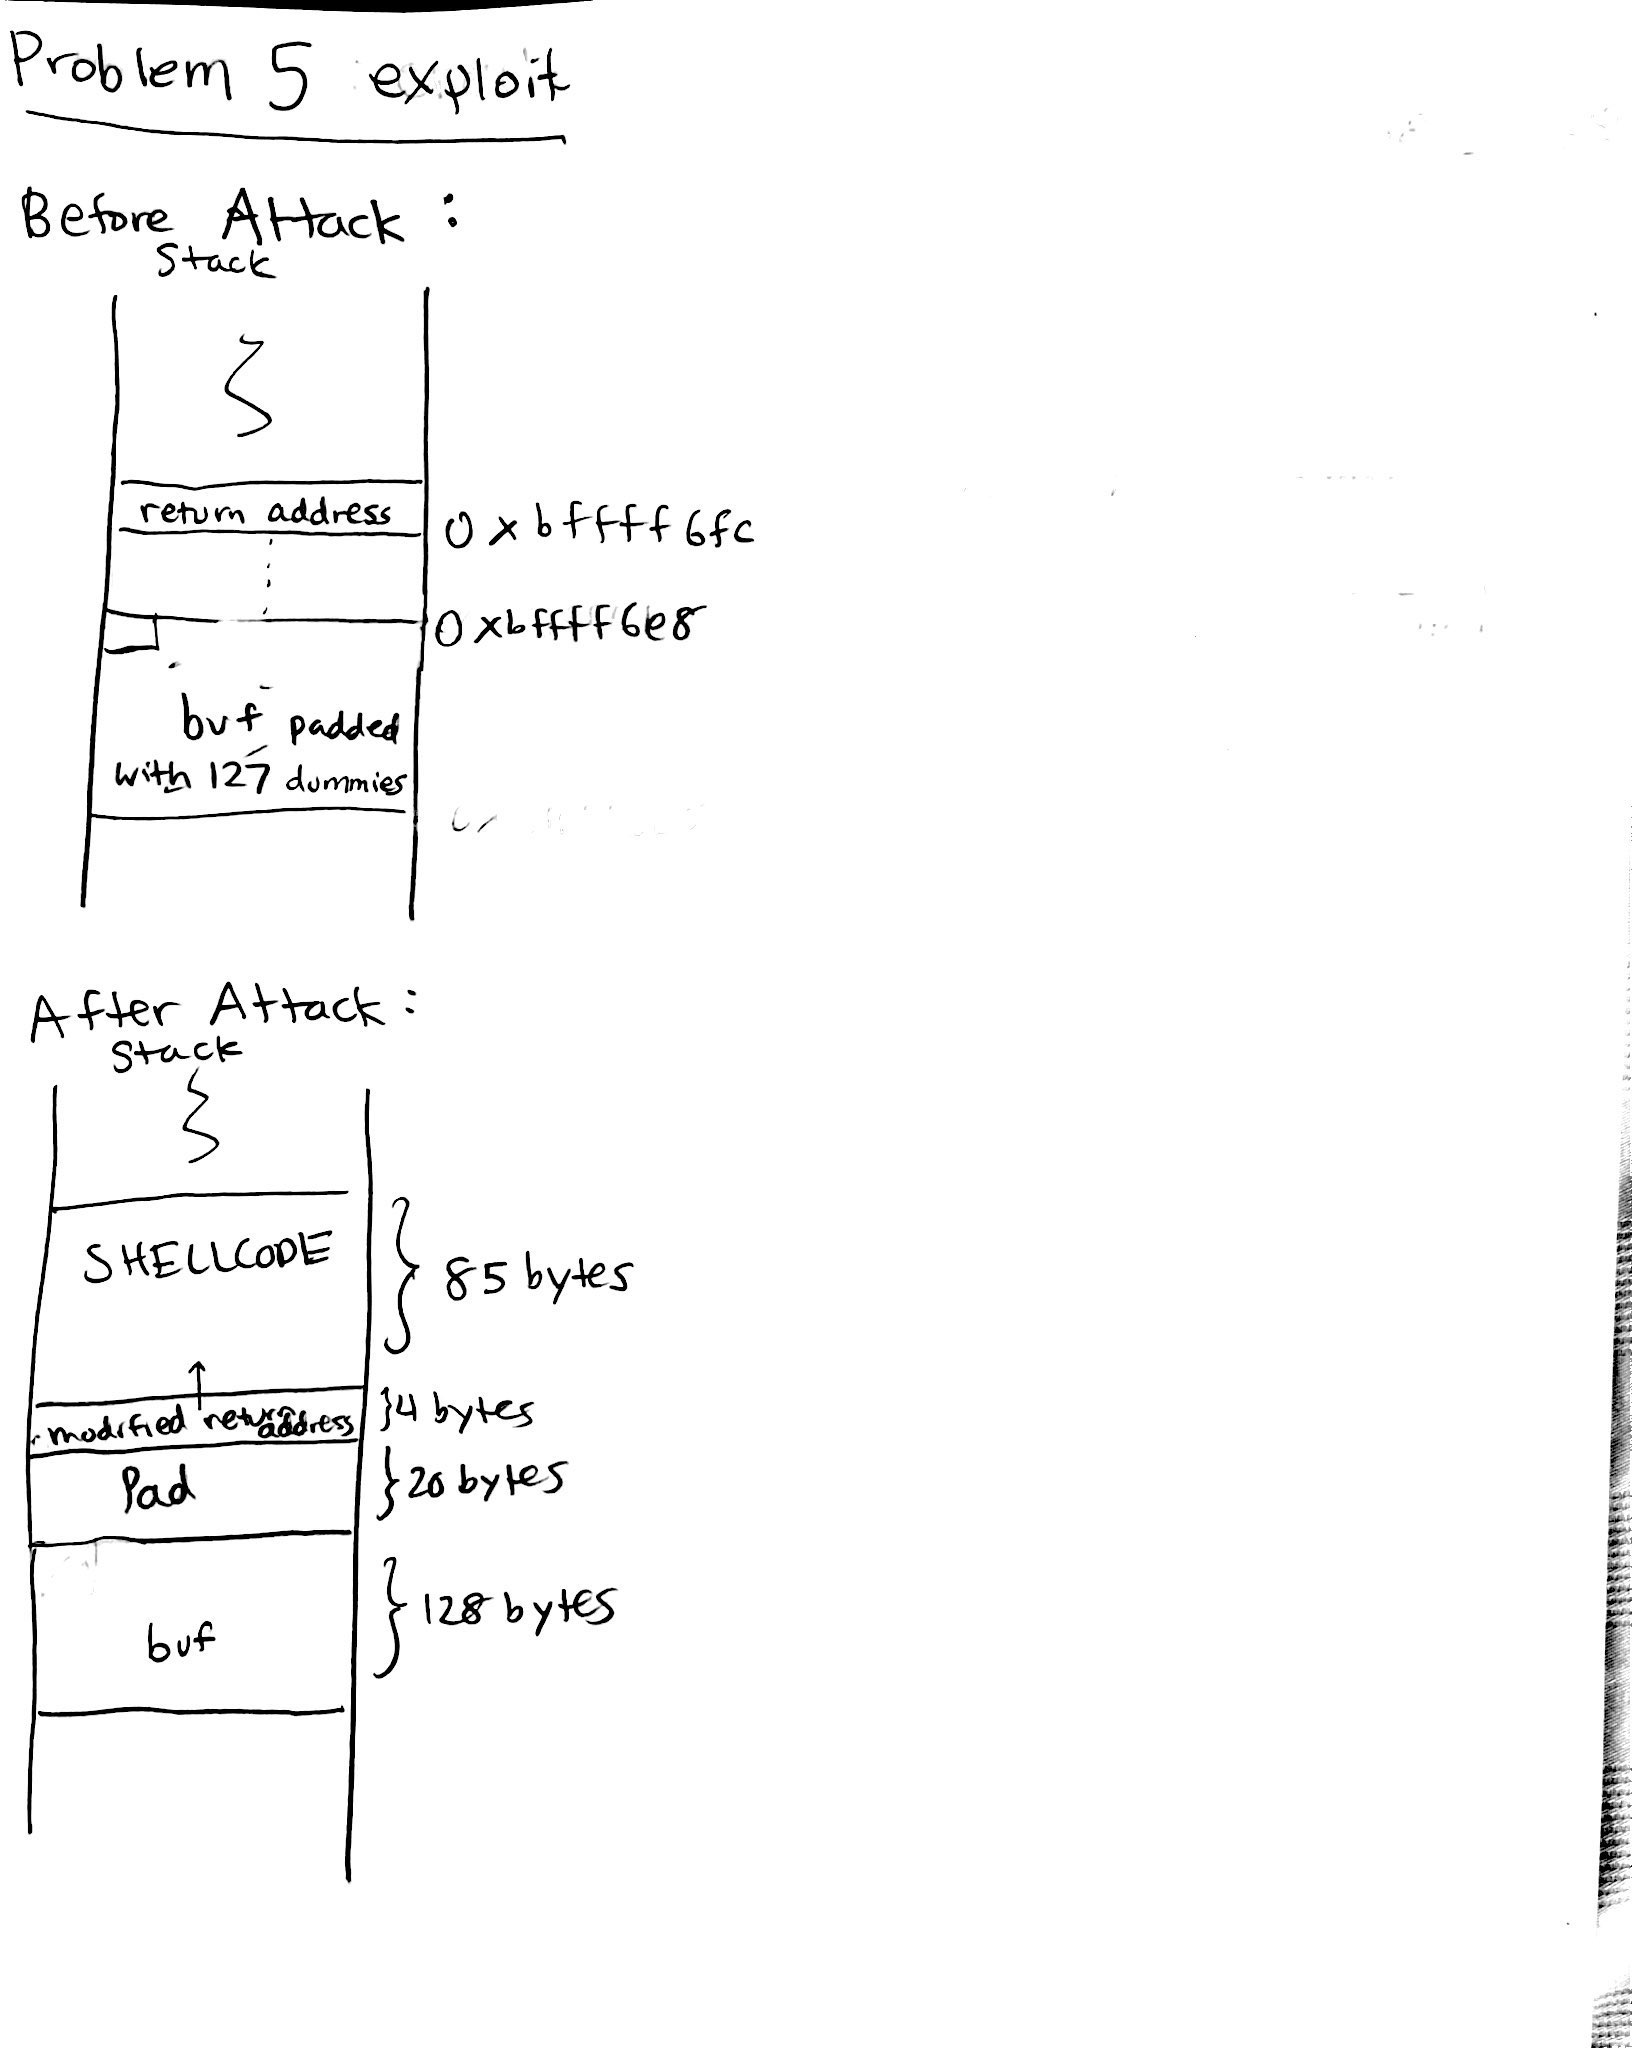 Problem 5 exploit
Before Attack :
Stack
return address
0xbffff6fc
0xbffff6e8
buf padded
with 127 dummies
After Attack :
Stack
SHELLCODE
85 bytes
modified return address
4 bytes
Pad
20 bytes
buf
128 bytes